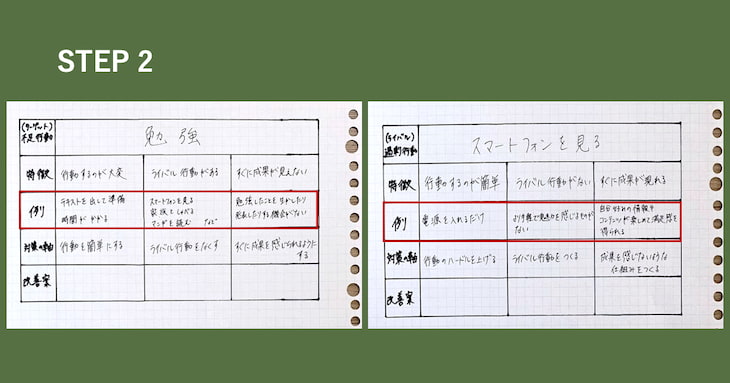 STEP 2
(ターゲット)
不足行動
勉強
特徴
行動するのが大変
ライバル行動がある
すぐに成果が見えない
例
テキストを出して準備
時間がかかる
スマートフォンを見る
家族としゃべる
マンガを読む など
勉強したことを生かしたり
発表したりする機会がない
対策の軸
行動を簡単にする
ライバル行動をなくす
すぐに成果を感じられるように
する
改善案
(ライバル)
過剰行動
スマートフォンを見る
特徴
行動するのが簡単
ライバル行動がない
すぐに成果が現れる
例
電源を入れるだけ
より強く魅力を感じるものが
ない
自分好みの情報や
コンテンツが楽しめて満足感を
得られる
対策の軸
行動のハードルを上げる
ライバル行動をつくる
成果を感じないような
仕組みをつくる
改善案